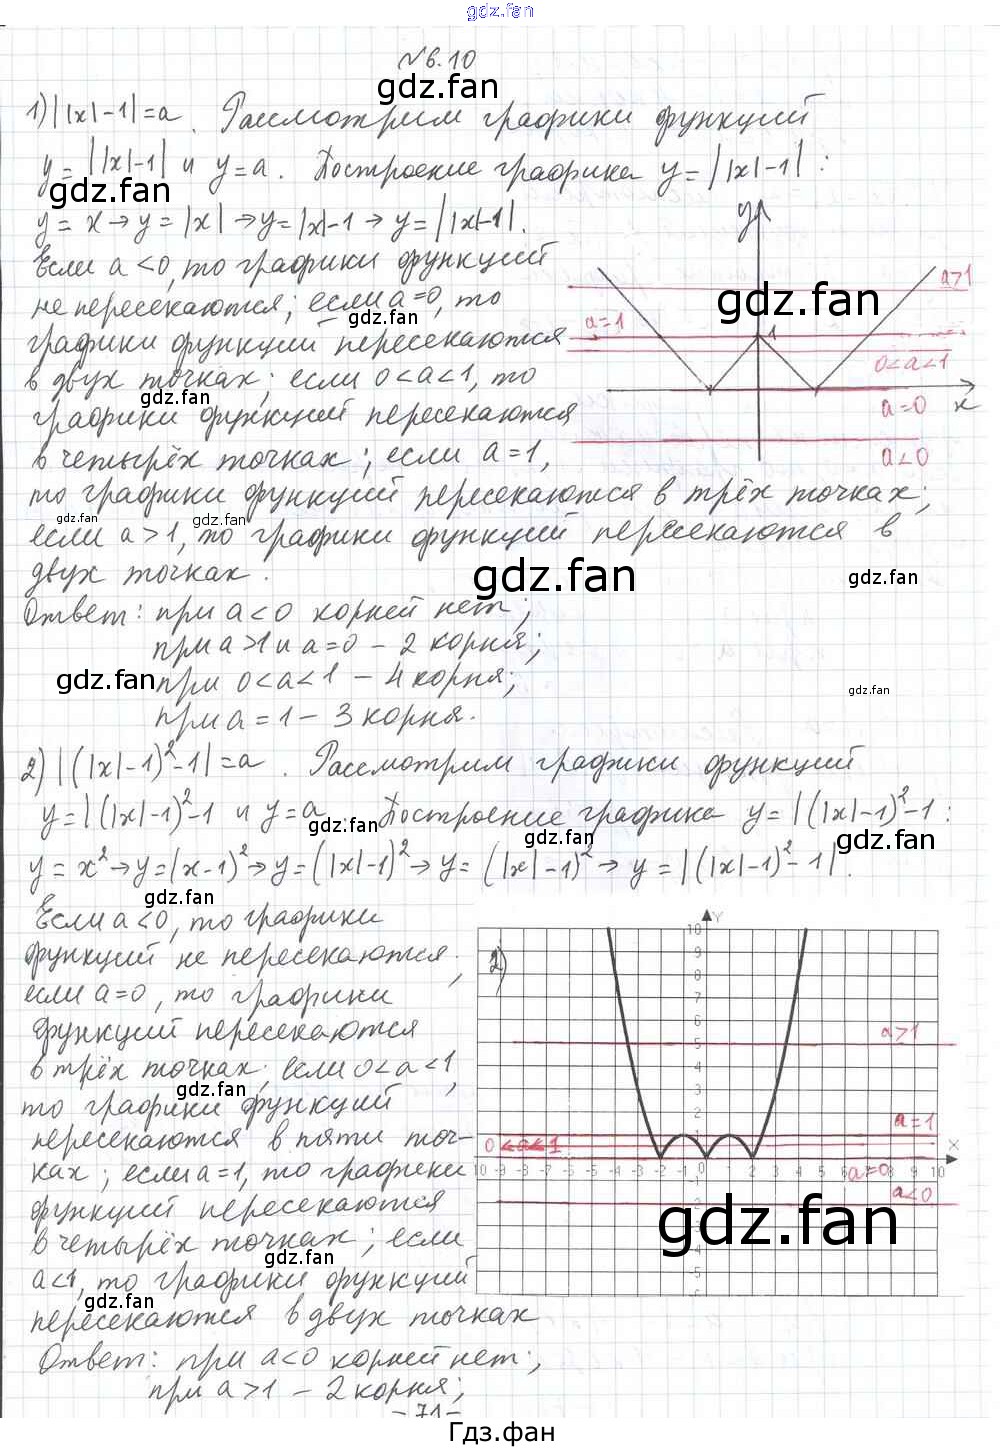 gdz.fan
№6.10
gdz.fan
1) ||x|-1|=a. Рассмотрим графики функций
y=||x|-1| и y=a. Построение графика y=||x|-1|:
gdz.fan
y=x→y=|x|→y=|x|-1→y=||x|-1|.
Если a<0, то графики функций
не пересекаются; если a=0, то
gdz.fan
графики функций пересекаются
в двух точках; если 0<a<1, то
gdz.fan
графики функций пересекаются
в четырёх точках; если a=1,
то графики функций пересекаются в трёх точках;
gdz.fan gdz.fan
если a>1, то графики функций пересекаются в
двух точках.
y
a>1
gdz.fan
a=1
1
0<a<1
a=0
x
a<0
gdz.fan
gdz.fan
Ответ: при a<0 корней нет;
при a>1 и a=0 - 2 корня;
gdz.fan
при 0<a<1 - 4 корня;
gdz.fan
при a=1 - 3 корня.
2) |(|x|-1)²-1|=a. Рассмотрим графики функций
y=|(|x|-1)²-1 и y=a. Построение графика y=|(|x|-1)²-1:
gdz.fan gdz.fan gdz.fan
y=x²→y=(x-1)²→y=(|x|-1)²→y=(|x|-1)²→y=|(|x|-1)²-1|.
gdz.fan
Если a<0, то графики
функций не пересекаются;
gdz.fan
если a=0, то графики
функций пересекаются
в трёх точках; если 0<a<1,
gdz.fan
то графики функций
пересекаются в пяти точ-
ках; если a=1, то графики
функций пересекаются
в четырёх точках; если
gdz.fan
a<1, то графики функций
gdz.fan
пересекаются в двух точках
2)
Y
10
9
8
7
6
5
4
3
2
1
a>1
a=1
0<a<1
X
10 -9 -8 -7 -6 -5 -4 -3 -2 -1 0 1 2 3 4 5 6 7 8 9 10
a=0
a<0
gdz.fan
Ответ: при a<0 корней нет;
при a>1 - 2 корня;
- 71 -
Гдз.фан